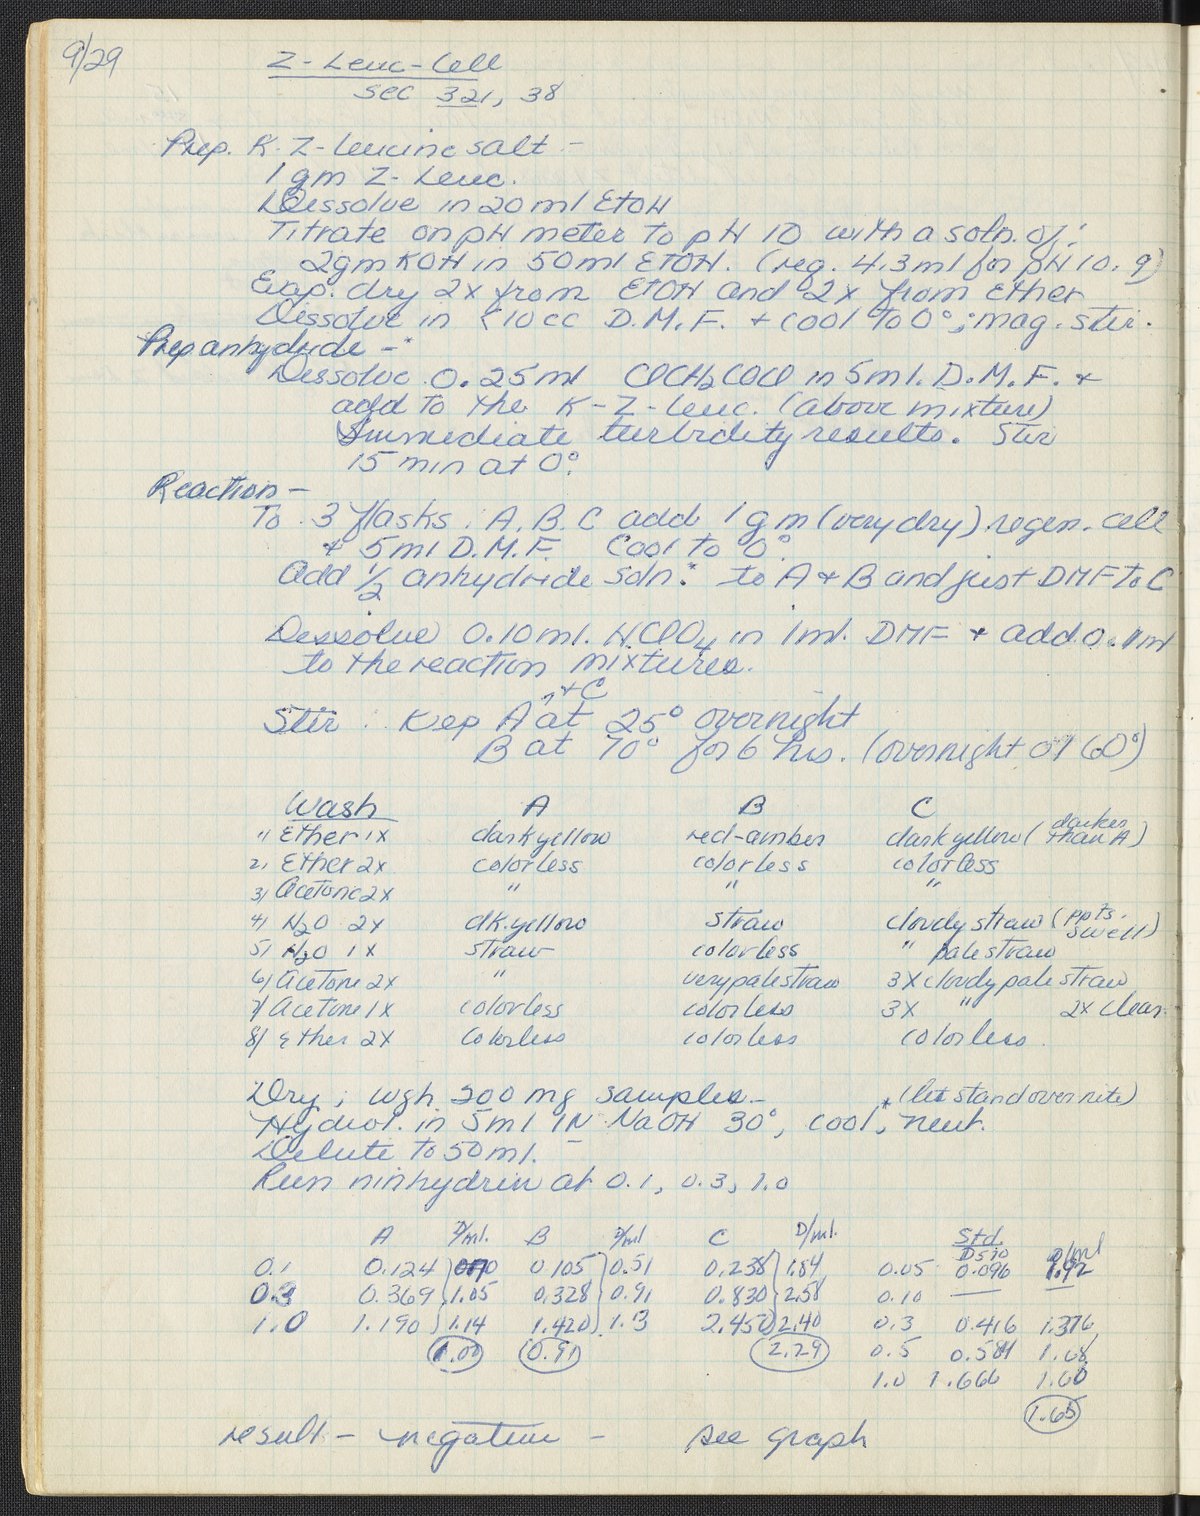 9/29
Z-Leuc-Cell
sec 321, 38
Prep. K-Z-Leucine salt -
1 gm Z-Leuc.
Dissolve in 20 ml EtOH
Titrate on pH meter to pH 10 with a soln. of:
2gm KOH in 50ml EtOH. (req. 4.3ml for pH 10.9)
Evap. dry 2x from EtOH and 2x from Ether
Dissolve in <10cc D.M.F. + cool to 0°; mag. stir.
Prep anhydride -*
Dissolve 0.25ml ClCH2COCl in 5ml. D.M.F. +
add to the K-Z-Leuc. (above mixture)
Immediate turbidity results. Stir
15 min at 0°.
Reaction -
To 3 flasks: A. B. C add 1 gm (very dry) regen. cell
+ 5ml D.M.F. Cool to 0°.
Add 1/2 anhydride soln.* to A + B and just DMF to C
Dissolve 0.10ml. HClO4 in 1ml. DMF + add 0.1ml
to the reaction mixtures.
Stir. Keep A ^+C at 25° overnight
B at 70° for 6 hrs. (overnight at 60°)
Wash A B C
1) Ether 1x dark yellow red-amber dark yellow (darker than A)
2) Ether 2x colorless colorless colorless
3) Acetone 2x " " "
4) H2O 2x dk. yellow straw cloudy straw (ppts. swell)
5) H2O 1x straw colorless " pale straw
6) Acetone 2x " very pale straw 3x cloudy pale straw
7) Acetone 1x colorless colorless 3x " 2x clear
8) Ether 2x colorless colorless colorless
Dry; wgh. 200 mg samples -
* (let stand over nite)
Hydrol. in 5ml 1N NaOH 30°, cool, neut.
Dilute to 50ml.
Run ninhydrin at 0.1, 0.3, 1.0
A D/ml. B D/ml C D/ml. Std. D570 D/ml
0.1 0.124 0.105 0.51 0.238 1.84 0.05 0.096 1.92
0.3 0.369 1.05 0.328 0.91 0.830 2.58 0.10 — —
1.0 1.190 1.14 1.420 1.13 2.450 2.40 0.3 0.416 1.376
0.91 2.29 0.5 1.08
1.0 1.666 1.60
1.65
result - negative - see graph